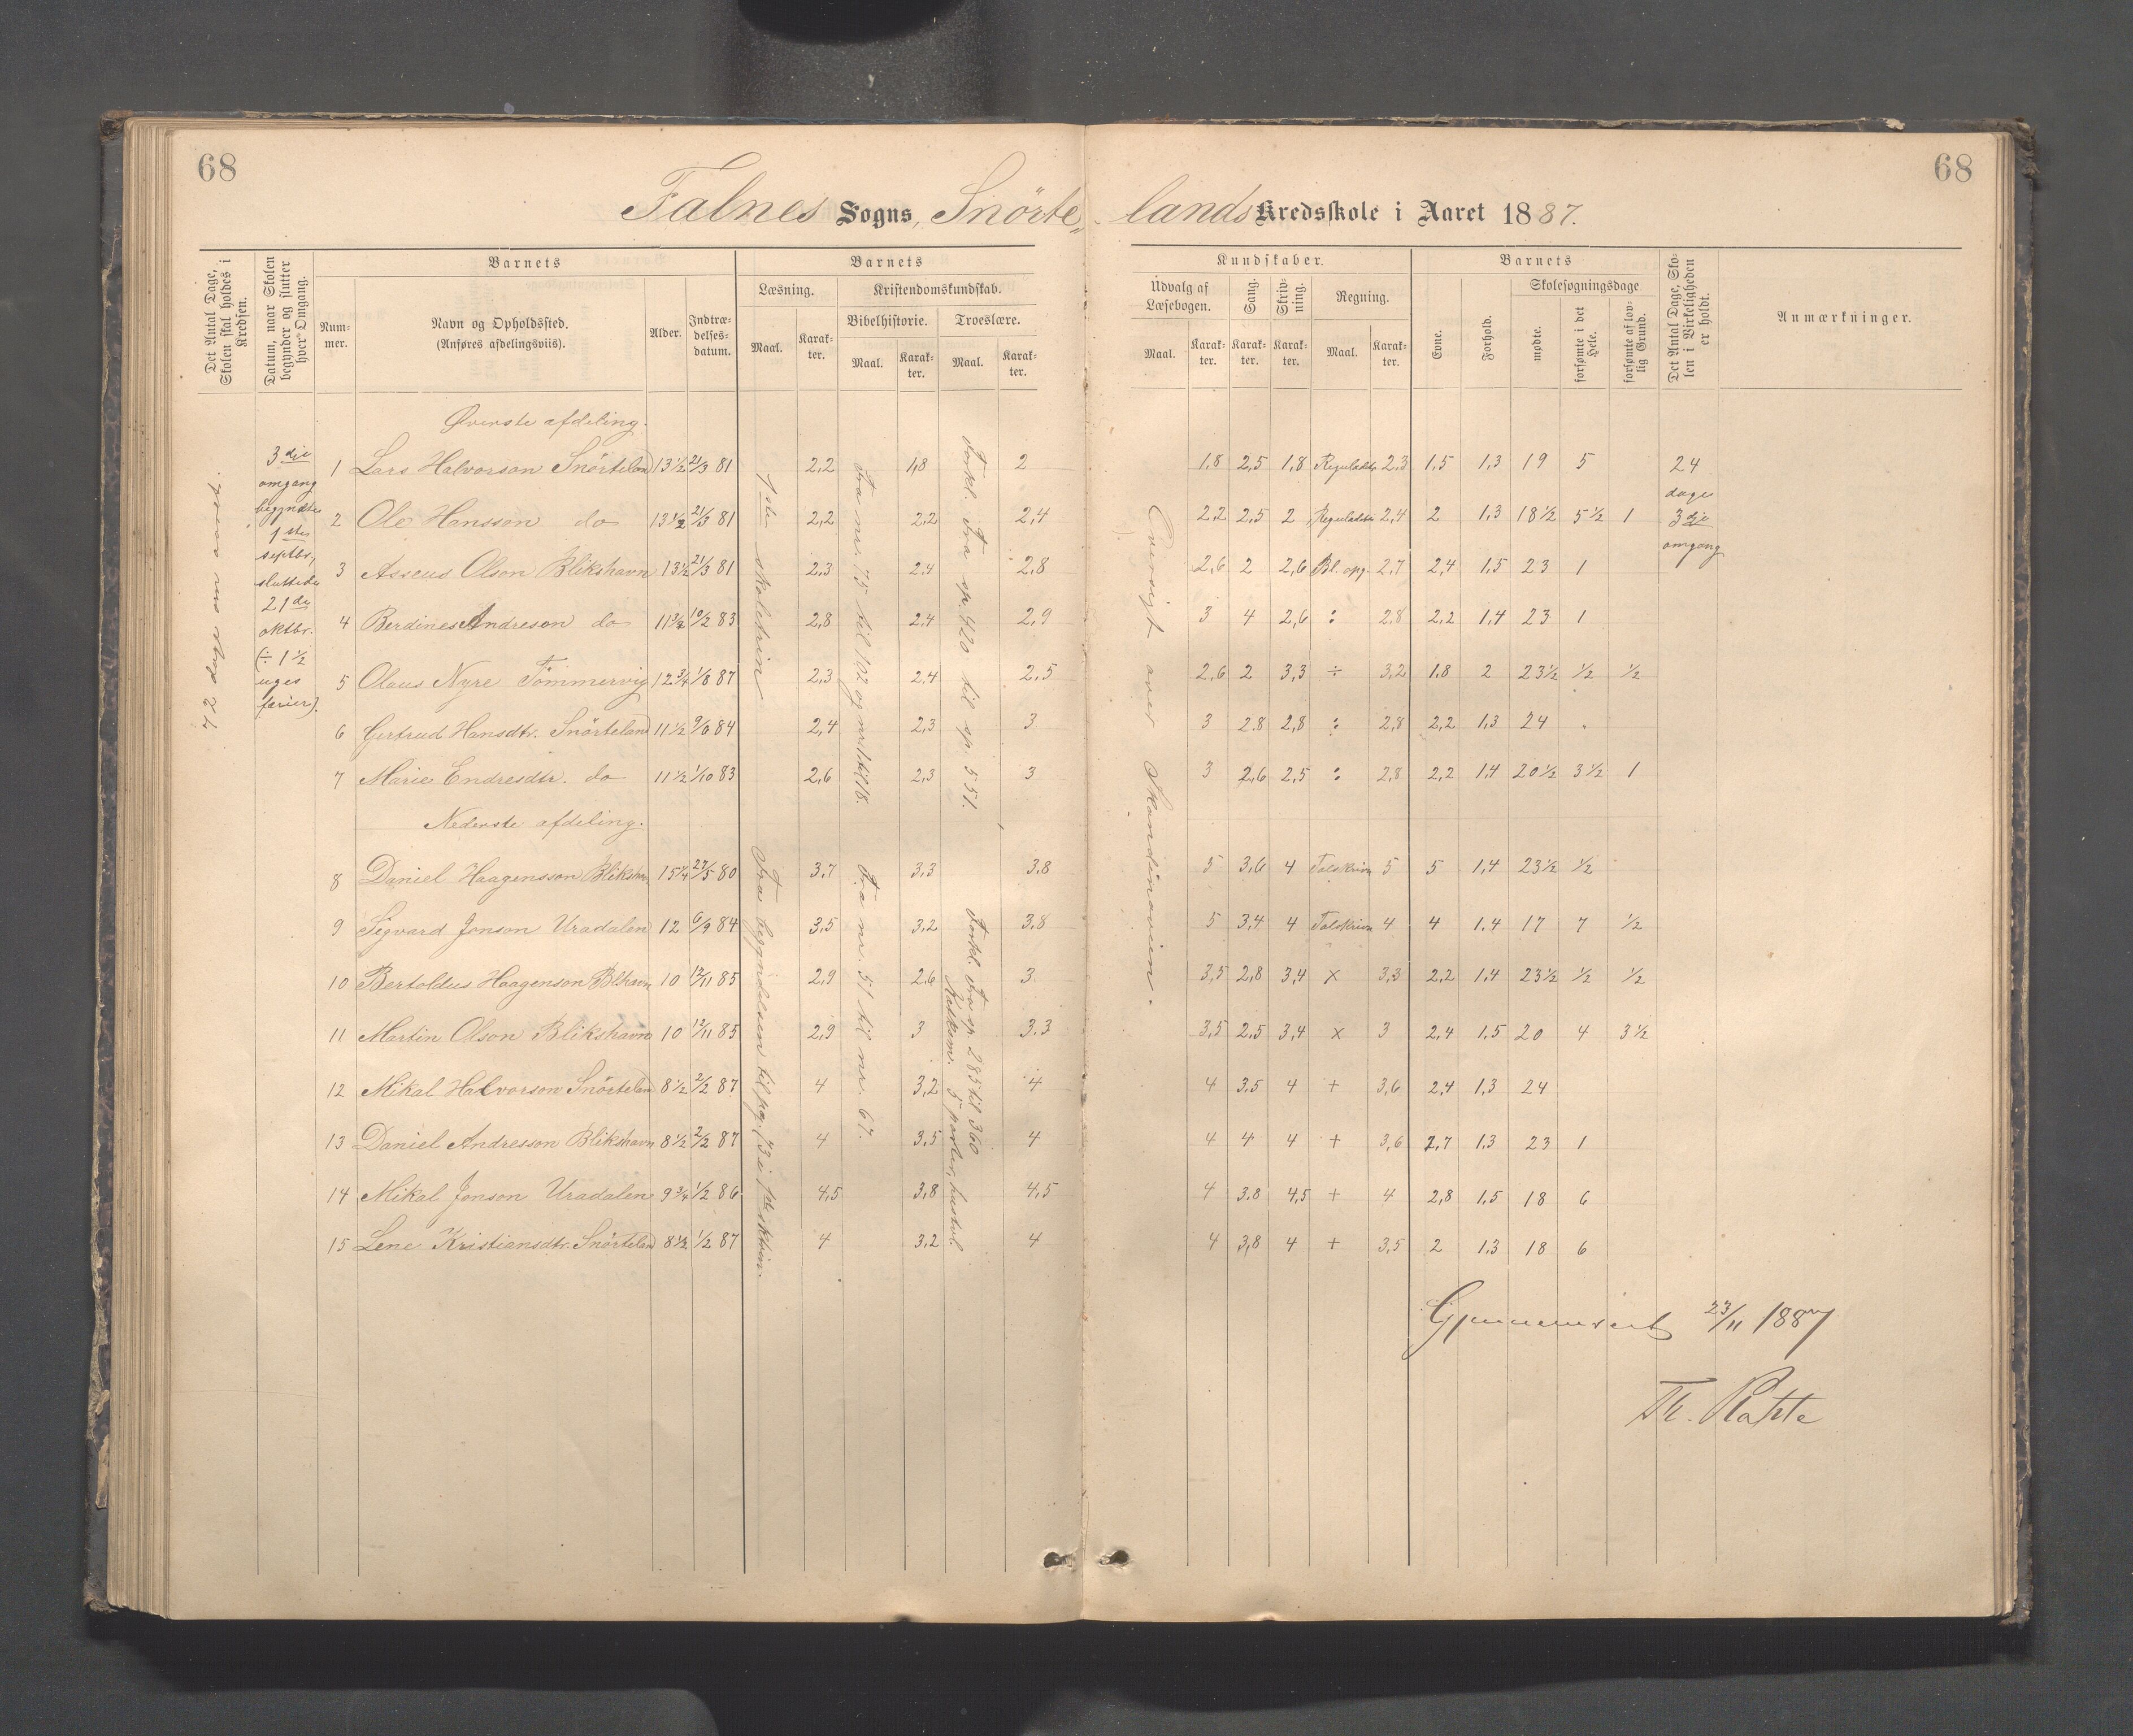 68
68
Falnes Sogns, Snörte„ lands Kredsskole i Aaret 1887.
Det Antal Dage, Skolen skal holdes i Kredsen.
Datum, naar Skolen begynder og slutter hver Omgang.
Barnets
Num-mer.
Navn og Opholdssted.
(Anføres afdelingsviis).
Alder.
Indtræ-delses-datum.
Barnets
Læsning.
Maal.
Karak-ter.
Kristendomskundskab.
Bibelhistorie.
Maal.
Karak-ter.
Troeslære.
Maal.
Karak-ter.
Kundskaber.
Udvalg af Læsebogen.
Maal.
Karak-ter.
Sang.
Karak-ter.
Skriv-ning.
Karak-ter.
Regning.
Maal.
Karak-ter.
Barnets
Evne.
Forhold.
Skolesøgningsdage
mødte.
forsømte i det Hele.
forsømte af lov-lig Grund.
Det Antal Dage, Sko-len i Virkeligheden er holdt.
Anmærkninger.
72 dage
3die omgang begyndte 1ste septbr., sluttede 21de oktbr. (÷ 1½ uges ferier).
Øverste afdeling.
1 Lars Halvorson Snörteland 13½ 21/3 81 2,2 1,8 2 1,8 2,5 1,8 Reguladtr 2,3 1,5 1,3 19 5
2 Ole Hansson do 13½ 21/3 81 2,2 2,2 2,4 2,2 2,5 2 Reguladtr 2,4 2 1,3 18½ 5½ 1
3 Asseus Olson Blikshavn 13½ 21/3 81 2,3 2,4 2,8 2,6 2 2,6 Bl. opg. 2,7 2,4 1,5 23 1
4 Berdines Andreson do 11¾ 10/2 83 2,8 2,4 2,9 3 4 2,6 : 2,8 2,2 1,4 23 1
5 Olaus Nyre Tömmervig 12¾ 1/8 87 2,3 2,4 2,5 2,6 2 3,3 ÷ 3,2 1,8 2 23½ ½ ½
6 Gertrud Hansdtr. Snörteland 11½ 9/6 84 2,4 2,3 3 3 2.8 2,8 : 2,8 2,2 1,3 24
7 Marie Endresdtr. do 11½ 1/10 83 2,6 2,3 3 3 2,6 2,5 : 2,8 2,2 1,4 20½ 3½ 1
Nederste afdeling.
8 Daniel Haagensson Blikshavn 15¼ 27/5 80 3,7 3,3 3,8 5 3,6 4 Talskrivn 5 5 1,4 23½ ½
9 Sigvard Jonson Uradalen 12 6/9 84 3,5 3,2 3,8 5 3,4 4 Talskrivn 4 4 1,4 17 7 ½
10 Bertoldus Haagenson Blkhavn 10 12/11 85 2,9 2,6 3 3,5 2,8 3,4 × 3,3 2,2 1,4 23½ ½ ½
11 Martin Olson Blikshavn 10 12/11 85 2,9 3 3,3 3,5 2,5 3,4 × 3 2,4 1,5 20 4 3½
12 Mikal Halvorson Snörteland 8½ 2/2 87 4 3,2 4 4 3,5 4 + 3,6 2,4 1,3 24
13 Daniel Andresson Blikshavn 8½ 2/2 87 4 3,5 4 4 4 4 + 3,6 2,7 1,3 23 1
14 Mikal Jonson Uradalen 9¾ 1/2 86 4,5 3,8 4,5 4 3,8 4,5 + 4 2,8 1,5 18 6
15 Lene Kristiansdtr. Snörteland 8½ 1/2 87 4 3,2 4 4 3,8 4 + 3,5 2 1,3 18 6
1ste skoletrin
Fra nr. 75 til 102 og nr. 1 til 18.
Forkl. Fra sp. 420 til sp. 551.
Oversigt over Skandinavien.
24 dage 3die omgang
Fra begyndelsen til pag. 73 i 1ste sktrin.
Fra nr. 51 til nr. 67.
Forkl. Fra sp. 285 til 360
Katekism. 5 parter, hustvl.
Gjennemseet 23/11 1887
Th. Rakte